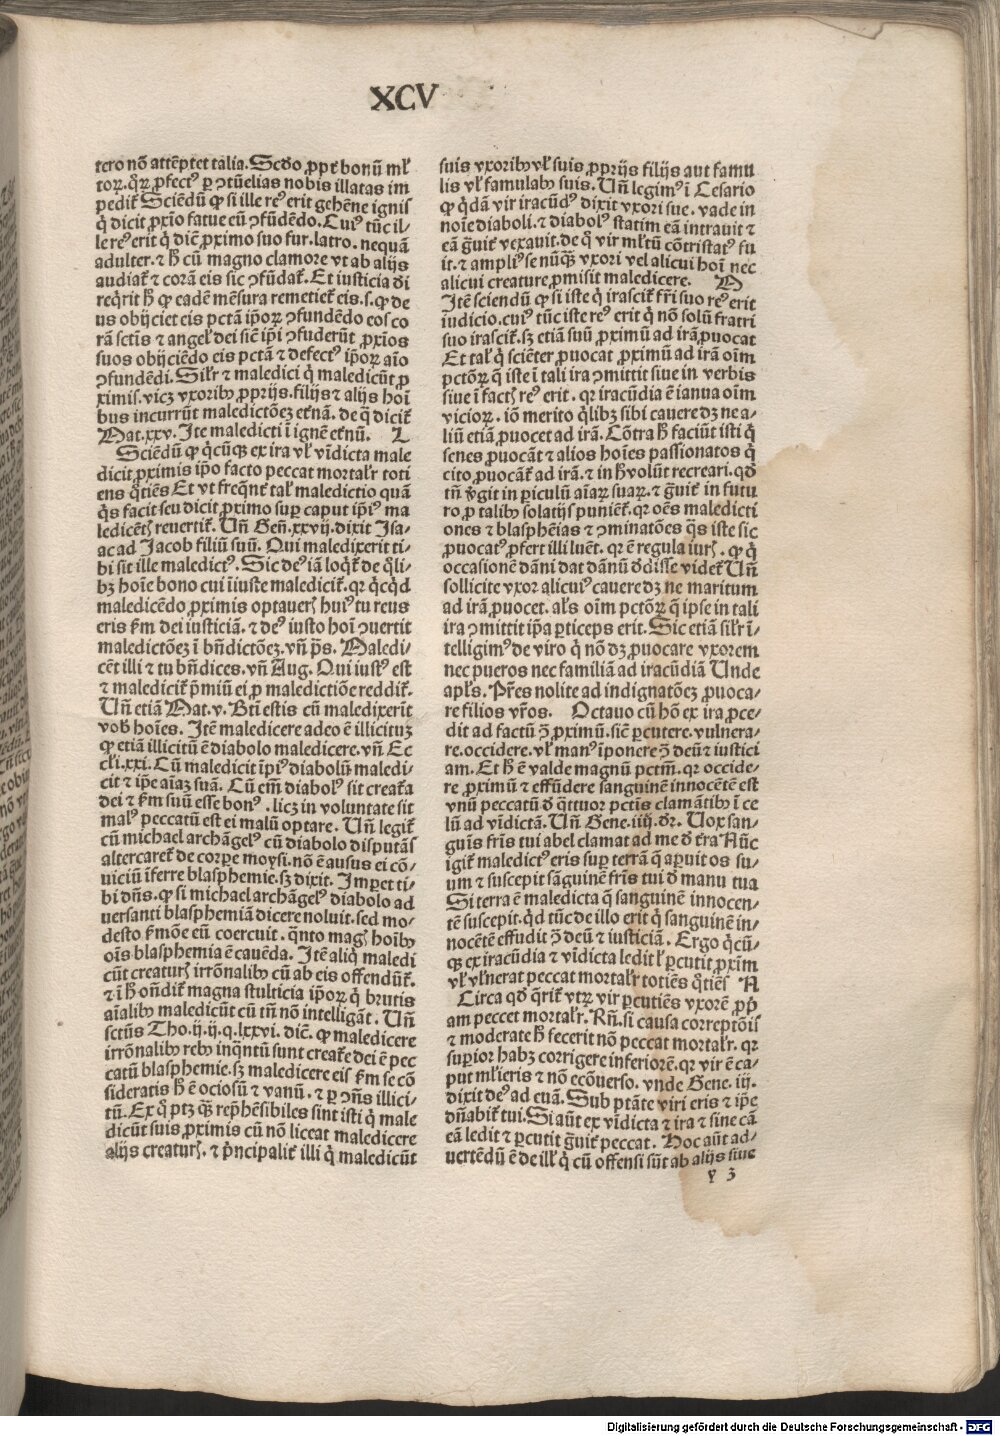 XCV
tero nõ attẽptet talia. Scďo ꝓpt̃ bonũ ml̃
toꝝ. q̃ꝝ ꝓfectꝰ ꝑ ↄtũelias nobis illatas im
pedit̃ Sciendũ ꝙ si ille reꝰ erit gehẽne ignis
q̃ dicit ꝓxĩo fatue eũ ↄfũdẽdo. Cuiꝰ tũc il⸗
le reꝰ erit q̃ diẽ ꝓximo suo fur. latro. nequã
adulter. ⁊ h̃ cũ magno clamore vt ab alijs
audiat̃ ⁊ corã eis sic ↄfũdat̃. Et iusticia di
reqꝛit h̃ ꝙ eadẽ mẽsura remetiet̃ eis. s. ꝙ de
us obijciet eis pctã ip̃oꝝ ↄfundẽdo eos co
rã sctĩs ⁊ angel̃ dei siẽ ip̃i ↄfuderũt ꝓxĩos
suos obijciẽdo eis pctã ⁊ defectꝰ ip̃oꝝ aĩo
ↄfundẽdi. Sil̃r ⁊ maledici q̃ maledicũt ꝓ
ximis. vicꝫ vxoribꝰ ꝓprijs. filijs ⁊ alijs hoĩ
bus incurrũt maledictõeꝫ et̃nã. de q̃ dicit̃
Mat. xxv. Ite maledicti ĩ ignẽ et̃nũ. L
Sciendũ ꝙ q̃cũqꝫ ex ira vl̃ vĩdicta male
dicit ꝓximis ip̃o facto peccat mortal̃r toti
ens q̃tiẽs Et vt freq̃nt̃ tal̃ maledictio quã
q̃s facit seu dicit ꝓximo suꝑ caput ip̃iꝰ ma
ledicẽtꝭ reuertit̃. Uñ Geñ. xxvij. dixit Isa⸗
ac ad Jacob filiũ suũ. Qui maledixerit ti⸗
bi sit ille maledictꝰ. Sic deꝰ iã loq̃t̃ de q̃li⸗
bꝫ hoĩe bono cui ĩiuste maledicit̃. qꝛ q̃cq̃d
maledicẽdo ꝓximis optauerꝭ huiꝰ tu reus
eris ẜm dei iusticiã. ⁊ deꝰ iusto hoĩ ↄuertit
maledictõeꝫ ĩ bñdictõeꝫ. vñ p̃s. Maledi⸗
cẽt illi ⁊ tu bñdices. vñ Aug. Qui iustꝰ est
⁊ maledicit̃ p̃miũ ei ꝓ maledictiõe reddit̃.
Uñ etiã Mat. v. Bt̃i estis cũ maledixerĩt
vobꝭ hoĩes. Itẽ maledicere adeo ẽ illicituꝫ
ꝙ etiã illicitũ ẽ diabolo maledicere. vñ Ec
cl̃i. xxi. Cũ maledicit ip̃iꝰ diabolũ maledi⸗
cit ⁊ ip̃e aĩaꝫ suã. Cũ em̃ diabolꝰ sit creat̃a
dei ⁊ ẜm suũ esse bonꝰ. licꝫ in voluntate sit
malꝰ peccatũ est ei malũ optare. Uñ legit̃
cũ michael archãgelꝰ cũ diabolo disputãs
altercaret̃ de corꝑe moysi. nõ ẽ ausus ei cõ⸗
viciũ ĩferre blasphemie. sꝫ dixit. Imꝑet ti⸗
bi dñs. ꝙ si michael archãgelꝰ diabolo ad
uersanti blasphemiã dicere noluit. sed mo⸗
desto ẜmõe eũ coercuit. q̃nto magꝭ hoĩbꝰ
oĩs blasphemia ẽ cauẽda. Itẽ aliq̃ maledi
cũt creaturꝭ irrõnalibꝰ cũ ab eis offendũt̃.
⁊ ĩ h̃ oñdit̃ magna stulticia ip̃oꝝ q̃ brutis
aĩalibꝰ maledicũt cũ tñ nõ intelligãt. Uñ
sctũs Tho. ij. ij. q. lxxvi. diẽ. ꝙ maledicere
irrõnalibꝰ rebꝰ inq̃ntũ sunt creat̃e dei ẽ pec
catũ blasphemie. sꝫ maledicere eis ẜm se cõ
sideratis h̃ ẽ ociosũ ⁊ vanũ. ⁊ ꝑ ↄñs illici⸗
tũ. Ex q̃ ptꝫ q̃ꝫ rep̃hẽsibiles sint isti q̃ male
dicũt suis ꝓximis cũ nõ liceat maledicere
alijs creaturꝭ. ⁊ p̃ncipalit̃ illi q̃ maledicũt
suis vxoribꝰ vl̃ suis ꝓprijs filijs aut famu
lis vl̃ famulabꝰ suis. Uñ legimꝰ ĩ Cesario
ꝙ q̃dã vir iracũdꝰ dixit vxori sue. vade in
noĩe diaboli. ⁊ diabolꝰ statim eã intrauit ⁊
eã g̃uit̃ vexauit. de q̃ vir ml̃tũ cõtristatꝰ fu
it. ⁊ ampliꝰ se nũq̃ꝫ vxori vel alicui hoĩ nec
alicui creature ꝓmisit maledicere. M
Itẽ sciendũ ꝙ si iste q̃ irascit̃ fr̃i suo reꝰ erit
iudicio. cuiꝰ tũc iste reꝰ erit q̃ nõ solũ fratri
suo irascit̃. sꝫ etiã suũ ꝓximũ ad irã ꝓuocat
Et tal̃ q̃ sciẽter ꝓuocat ꝓximũ ad irã oĩm
pctõꝝ q̃ iste ĩ tali ira ↄmittit siue in verbis
siue ĩ factꝭ reꝰ erit. qꝛ iracũdia ẽ ianua oĩm
vicioꝝ. iõ merito q̃libꝫ sibi cauere dꝫ ne a⸗
liũ etiã ꝓuocet ad irã. Cõtra h̃ faciũt isti q̃
senes ꝓuocãt ⁊ alios hoĩes passionatos q̃
cito ꝓuocãt̃ ad irã. ⁊ in h̃ volũt recreari. qď
tñ v̓git in ꝑiculũ aĩaꝝ suaꝝ. ⁊ g̃uit̃ in futu
ro ꝓ talibꝰ solatijs puniẽt̃. qꝛ oẽs maledicti
ones ⁊ blasphẽias ⁊ ↄminatões q̃s iste sic
ꝓuocatꝰ ꝓfert illi luẽt. qꝛ ẽ regula iurꝭ. ꝙ q̃
occasionẽ dãni dat dãnũ ďdisse videt̃ Uñ
sollicite vxor alicuiꝰ cauere dꝫ ne maritum
ad irã ꝓuocet. al̃s oĩm pctõꝝ q̃ ipse in tali
ira ↄmittit ip̃a ꝑticeps erit. Sic etiã sil̃r ĩ⸗
telligimꝰ de viro q̃ nõ dꝫ ꝓuocare vxorem
nec pueros nec familiã ad iracũdiã Unde
apl̃s. Pr̃es nolite ad indignatõeꝫ ꝓuoca⸗
re filios vr̃os. Octauo cũ hõ ex ira ꝓce⸗
dit ad factũ ↄ̃ ꝓximũ. siẽ ꝑcutere. vulnera⸗
re. occidere. vl̃ manꝰ ĩponere ↄ̃ deũ ⁊ iustici
am. Et h̃ ẽ valde magnũ pctm̃. qꝛ occide⸗
re ꝓximũ ⁊ effũdere sanguinẽ innocẽtẽ est
vnũ peccatũ ď q̃ttuor pctĩs clamãtibꝰ ĩ ce
lũ ad vĩdictã. Uñ Gene. iiij. dr̃. Uox san⸗
guĩs fr̃is tui abel clamat ad me ď t̃ra Nũc
igit̃ maledictꝰ eris suꝑ terrã q̃ aꝑuit os su⸗
um ⁊ suscepit sãguinẽ fr̃is tui ď manu tua
Si terra ẽ maledicta q̃ sanguinẽ innocen⸗
tẽ suscepit. q̃d tũc de illo erit q̃ sanguinẽ in⸗
nocẽtẽ effudit ↄ̃ deũ ⁊ iusticiã. Ergo q̃cũ⸗
qꝫ ex iracũdia ⁊ vĩdicta ledit l̃ ꝑcutit ꝓxĩm
vl̃ vl̃nerat peccat mortal̃r totiẽs q̃tiẽs N
Circa qď q̃rit̃ vtꝝ vir ꝑcutiẽs vxorẽ ꝓp̃
am peccet mortal̃r. Rñ. si causa correptõĩs
⁊ moderate h̃ fecerit nõ peccat mortal̃r. qꝛ
suꝑior habꝫ corrigere inferiorẽ. qꝛ vir ẽ ca⸗
put ml̃ieris ⁊ nõ ecõuerso. vnde Gene. iij.
dixit deꝰ ad euã. Sub ptãte viri eris ⁊ ip̃e
dñabit̃ tui. Si aũt ex vĩdicta ⁊ ira ⁊ sine cã
eã ledit ⁊ ꝑcutit g̃uit̃ peccat. Hoc aũt ad⸗
uertẽdũ ẽ de ill̃ q̃ cũ offensi sũt ab alijs siue
y 3
Digitalisierung gefördert durch die Deutsche Forschungsgemeinschaft - DFG